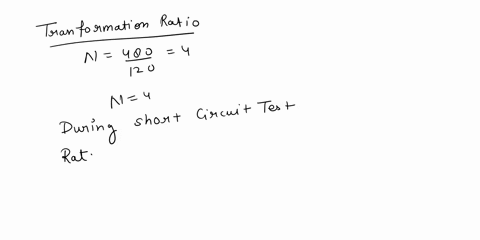 Transformation Ratio
N = 480/120 = 4
N = 4
During short Circuit Test
Rat.